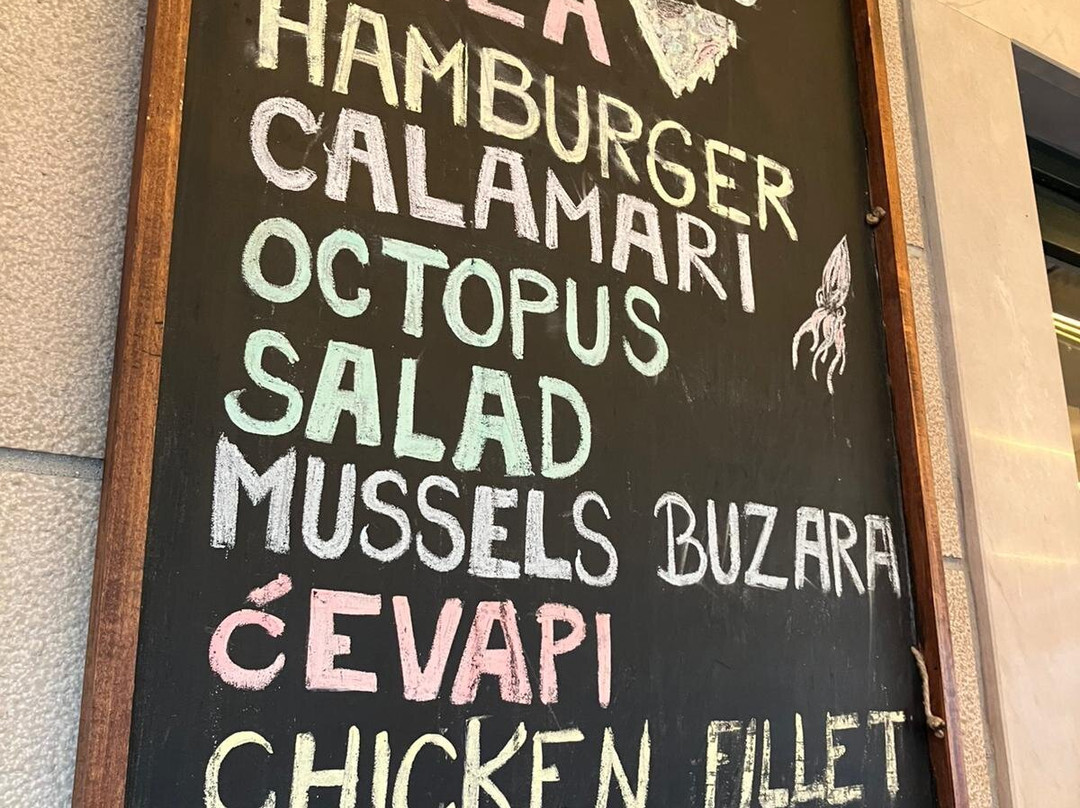 HAMBURGER
CALAMARI
OCTOPUS
SALAD
MUSSELS BUZARA
ĆEVAPI
CHICKEN FILLET